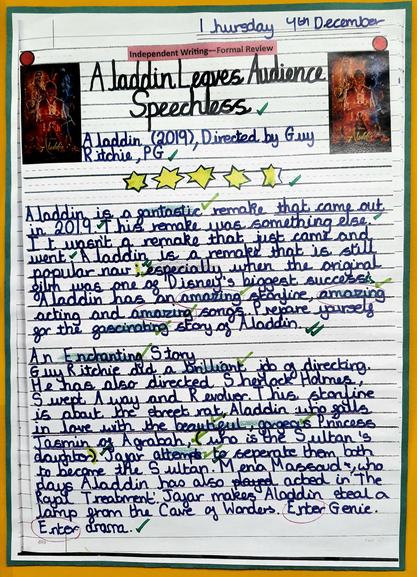 Thursday 4th December
Independent Writing—Formal Review
Aladdin Leaves Audience
Speechless
Aladdin (2019), Directed by Guy
Ritchie, PG
Aladdin is a fantastic remake that came out
in 2019. This remake was something else.
It wasn't a remake that just came and
went. Aladdin is a remake that is still
popular now; especially when the original
film was one of Disney's biggest success.
Aladdin has an amazing storyline, amazing
acting and amazing songs. Prepare yourself
for the fascinating story of Aladdin.
An Enchanting Story
Guy Ritchie did a brilliant job of directing.
He has also directed Sherlock Holmes,
Swept Away and Revolver. This storyline
is about the street rat, Aladdin who falls
in love with the beautiful, gorgeous Princess
Jasmin of Agrabah, who is the Sultan's
daughter). Jafar attempts to seperate them both
to become the Sultan. Mena Massoud, who
plays Aladdin has also played acted in 'The
Royal Treatment'. Jafar makes Aladdin steal a
lamp from the Cave of Wonders. Enter Genie.
Enter drama.